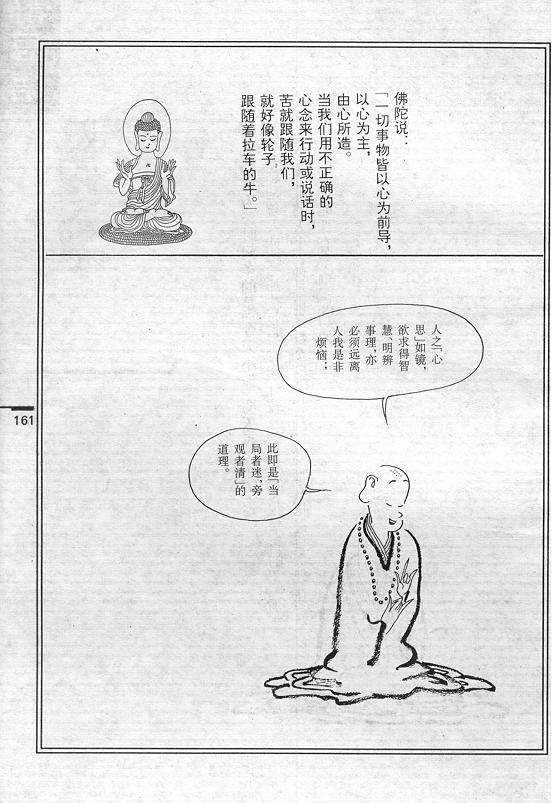 佛陀说：
「一切事物皆以心为前导，
以心为主，
由心所造。
当我们用不正确的
心念来行动或说话时，
苦就跟随我们，
就好像轮子
跟随着拉车的牛。」
人之「心
思」如镜，
欲求得智
慧，明辨
事理，亦
必须远离
人我是非
烦恼；
此即是「当
局者迷，旁
观者清」的
道理。
161